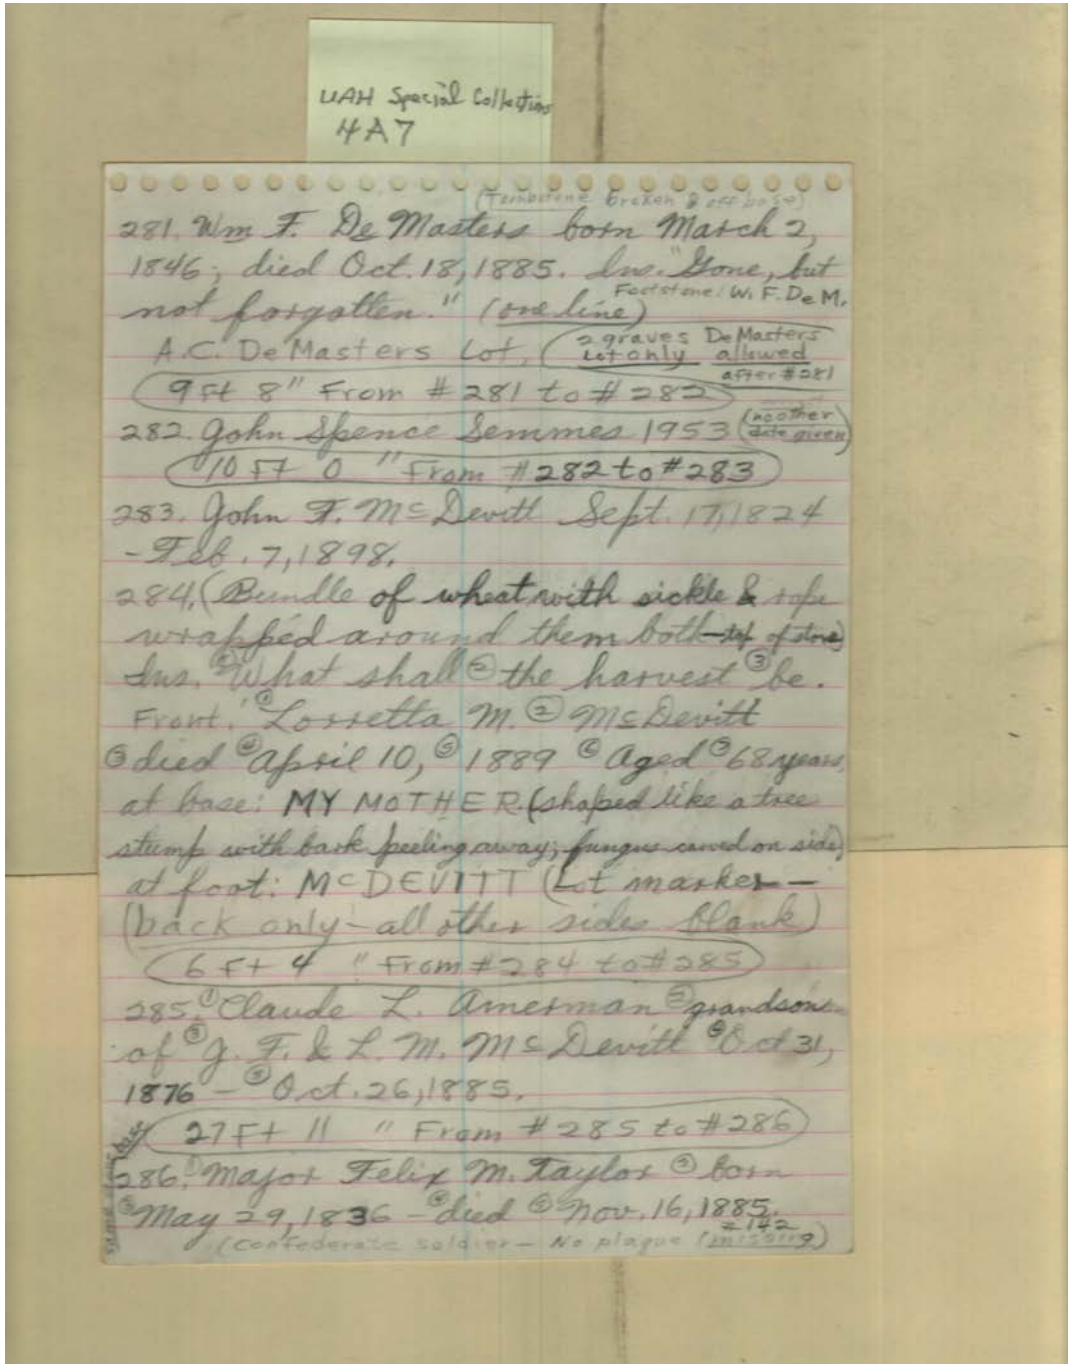 UAH Special Collections
4A7
(Tombstone broken & off base)
281. Wm F. De Masters born March 2,
1846; died Oct. 18, 1885. Ins. "Gone, but
not forgotten." (one line) Footstone: W. F. De M.
A.C. De Masters Lot, (2 graves De Masters
Lot only allowed
after #281
9 Ft 8" From #281 to #282
282. John Spence Semmes 1953 (no other
date given)
10 Ft 0 " From #282 to #283
283. John F. McDevitt Sept. 17, 1824
- Feb. 7, 1898.
284. (Bundle of wheat with sickle & rope
wrapped around them both - top of stone)
Ins. ① What shall ② the harvest ③ be.
Front: ① Lorretta M. ② McDevitt
③ died ④ April 10, ⑤ 1889 ⑥ Aged ⑦ 68 years,
at base: MY MOTHER. (shaped like a tree
stump with bark peeling away; fungus carved on side)
at foot: McDEVITT (Lot marker -
(back only - all other sides blank)
6 Ft 4 " From #284 to #285
285. ① Claude L. Amerman ② grandson
of ③ J. F. & L. M. McDevitt ④ Oct 31,
1876 - ⑤ Oct. 26, 1885.
27 Ft 11 " From #285 to #286
286. ① Major Felix M. Taylor ② born
③ May 29, 1836 - ④ died ⑤ Nov. 16, 1885.
#142
(Confederate soldier - No plaque (missing)
base